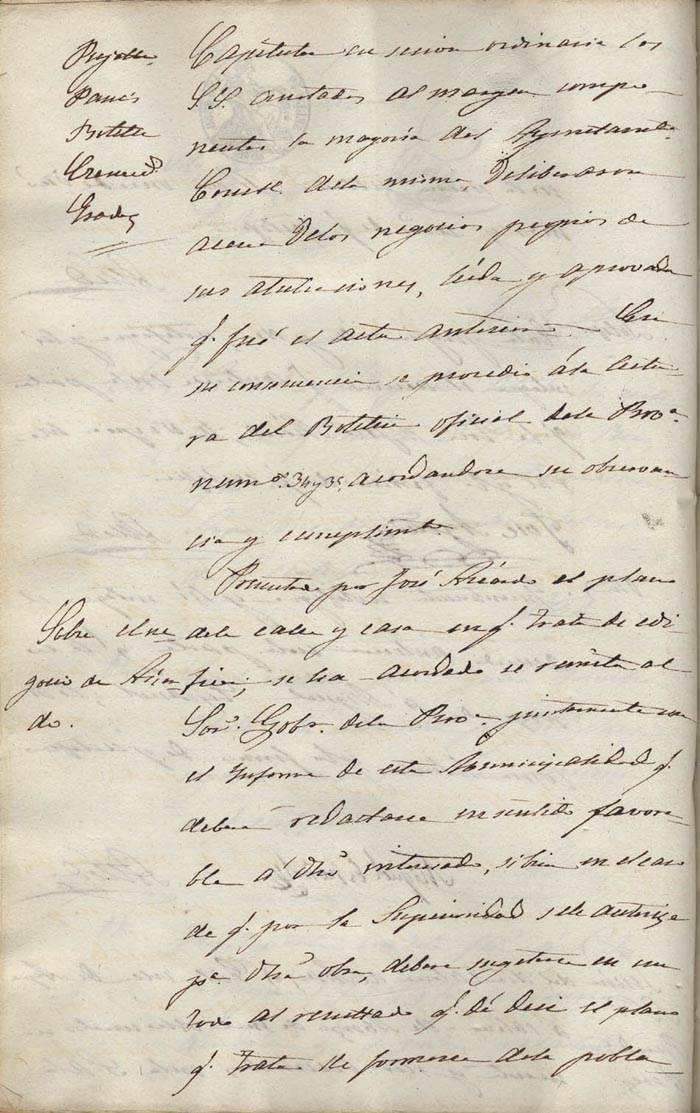 Capitular en sesion ordinaria los
S.S. anotados al margen compo-
nentes la mayoria del Ayuntamto
Const. dela misma deliberaron
acerca delos negocios propios de
sus atribuciones, leida y aprovada
q. fué el acta anterior. En
su consecuencia se procedio á la lectu-
ra del Boletin oficial dela Prova
numos. 34 y 35, acordandose su observan-
cia y cumplimto.
Presentado por José Aricardo el plano
Sobre el ne- dela calle y casa en q. trata de edi-
gocio de ficar, se ha acordado se remita al
do. Sor. Gobr. dela Prova juntamente con
el informe de esta Municipalidad q.
deberá redactarse en sentido favora-
ble á dho interesado, si bien en el caso
de q. por la Superioridad se le autorize
pa. dha. obra, debera sugetarse en un
todo al resultado q. dé de si el plano
q. trata de formarse dela pobla-